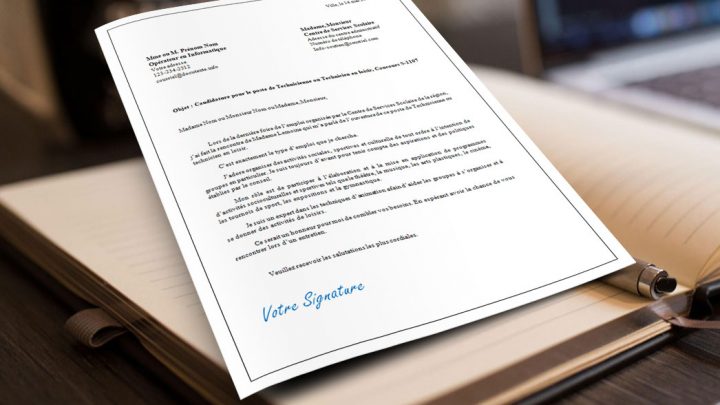 Ville, le 14 mai
Mme ou M. Prénom Nom
Opérateur en Informatique
Votre adresse
123-234-2312
courriel@docutexte.info
Madame, Monsieur
Centre de Services Scolaire
Adresse du centre administratif
Numéro de téléphone
Info-soutien@courriel.com
Objet : Candidature pour le poste de Technicienne ou Technicien en loisir. Concours S-1107
Madame Nom ou Monsieur Nom ou Madame, Monsieur,
Lors de la dernière foire de l'emploi organisée par le Centre de Services Scolaire de la région,
j'ai fait la rencontre de Madame Lamoureux qui m'a parlé de l'ouverture de ce poste de Technicienne ou
technicien en loisir.
C'est exactement le type d'emploi que je cherche.
J'adore organiser des activités sociales, sportives et culturelle de tout ordre à l'intention de
groupes en particulier. Je suis toujours d'avant pour tenir compte des aspirations et des politiques
établies par le conseil.
Mon rôle est de participer à l'élaboration et à la mise en application de programmes
d'activités socioculturelles et sportives tels que le théâtre, la musique, les arts plastiques, le cinéma,
les tournois de sport, les expositions et la gymnastique.
Je suis un expert dans les techniques d'animation afin d'aider les groupes à s'organiser et à
se donner des activités de loisirs.
Ce serait un honneur pour moi de combler vos besoins. En espérant avoir la chance de vous
rencontrer lors d'un entretien.
Veuillez recevoir les salutations les plus cordiales.
Votre Signature